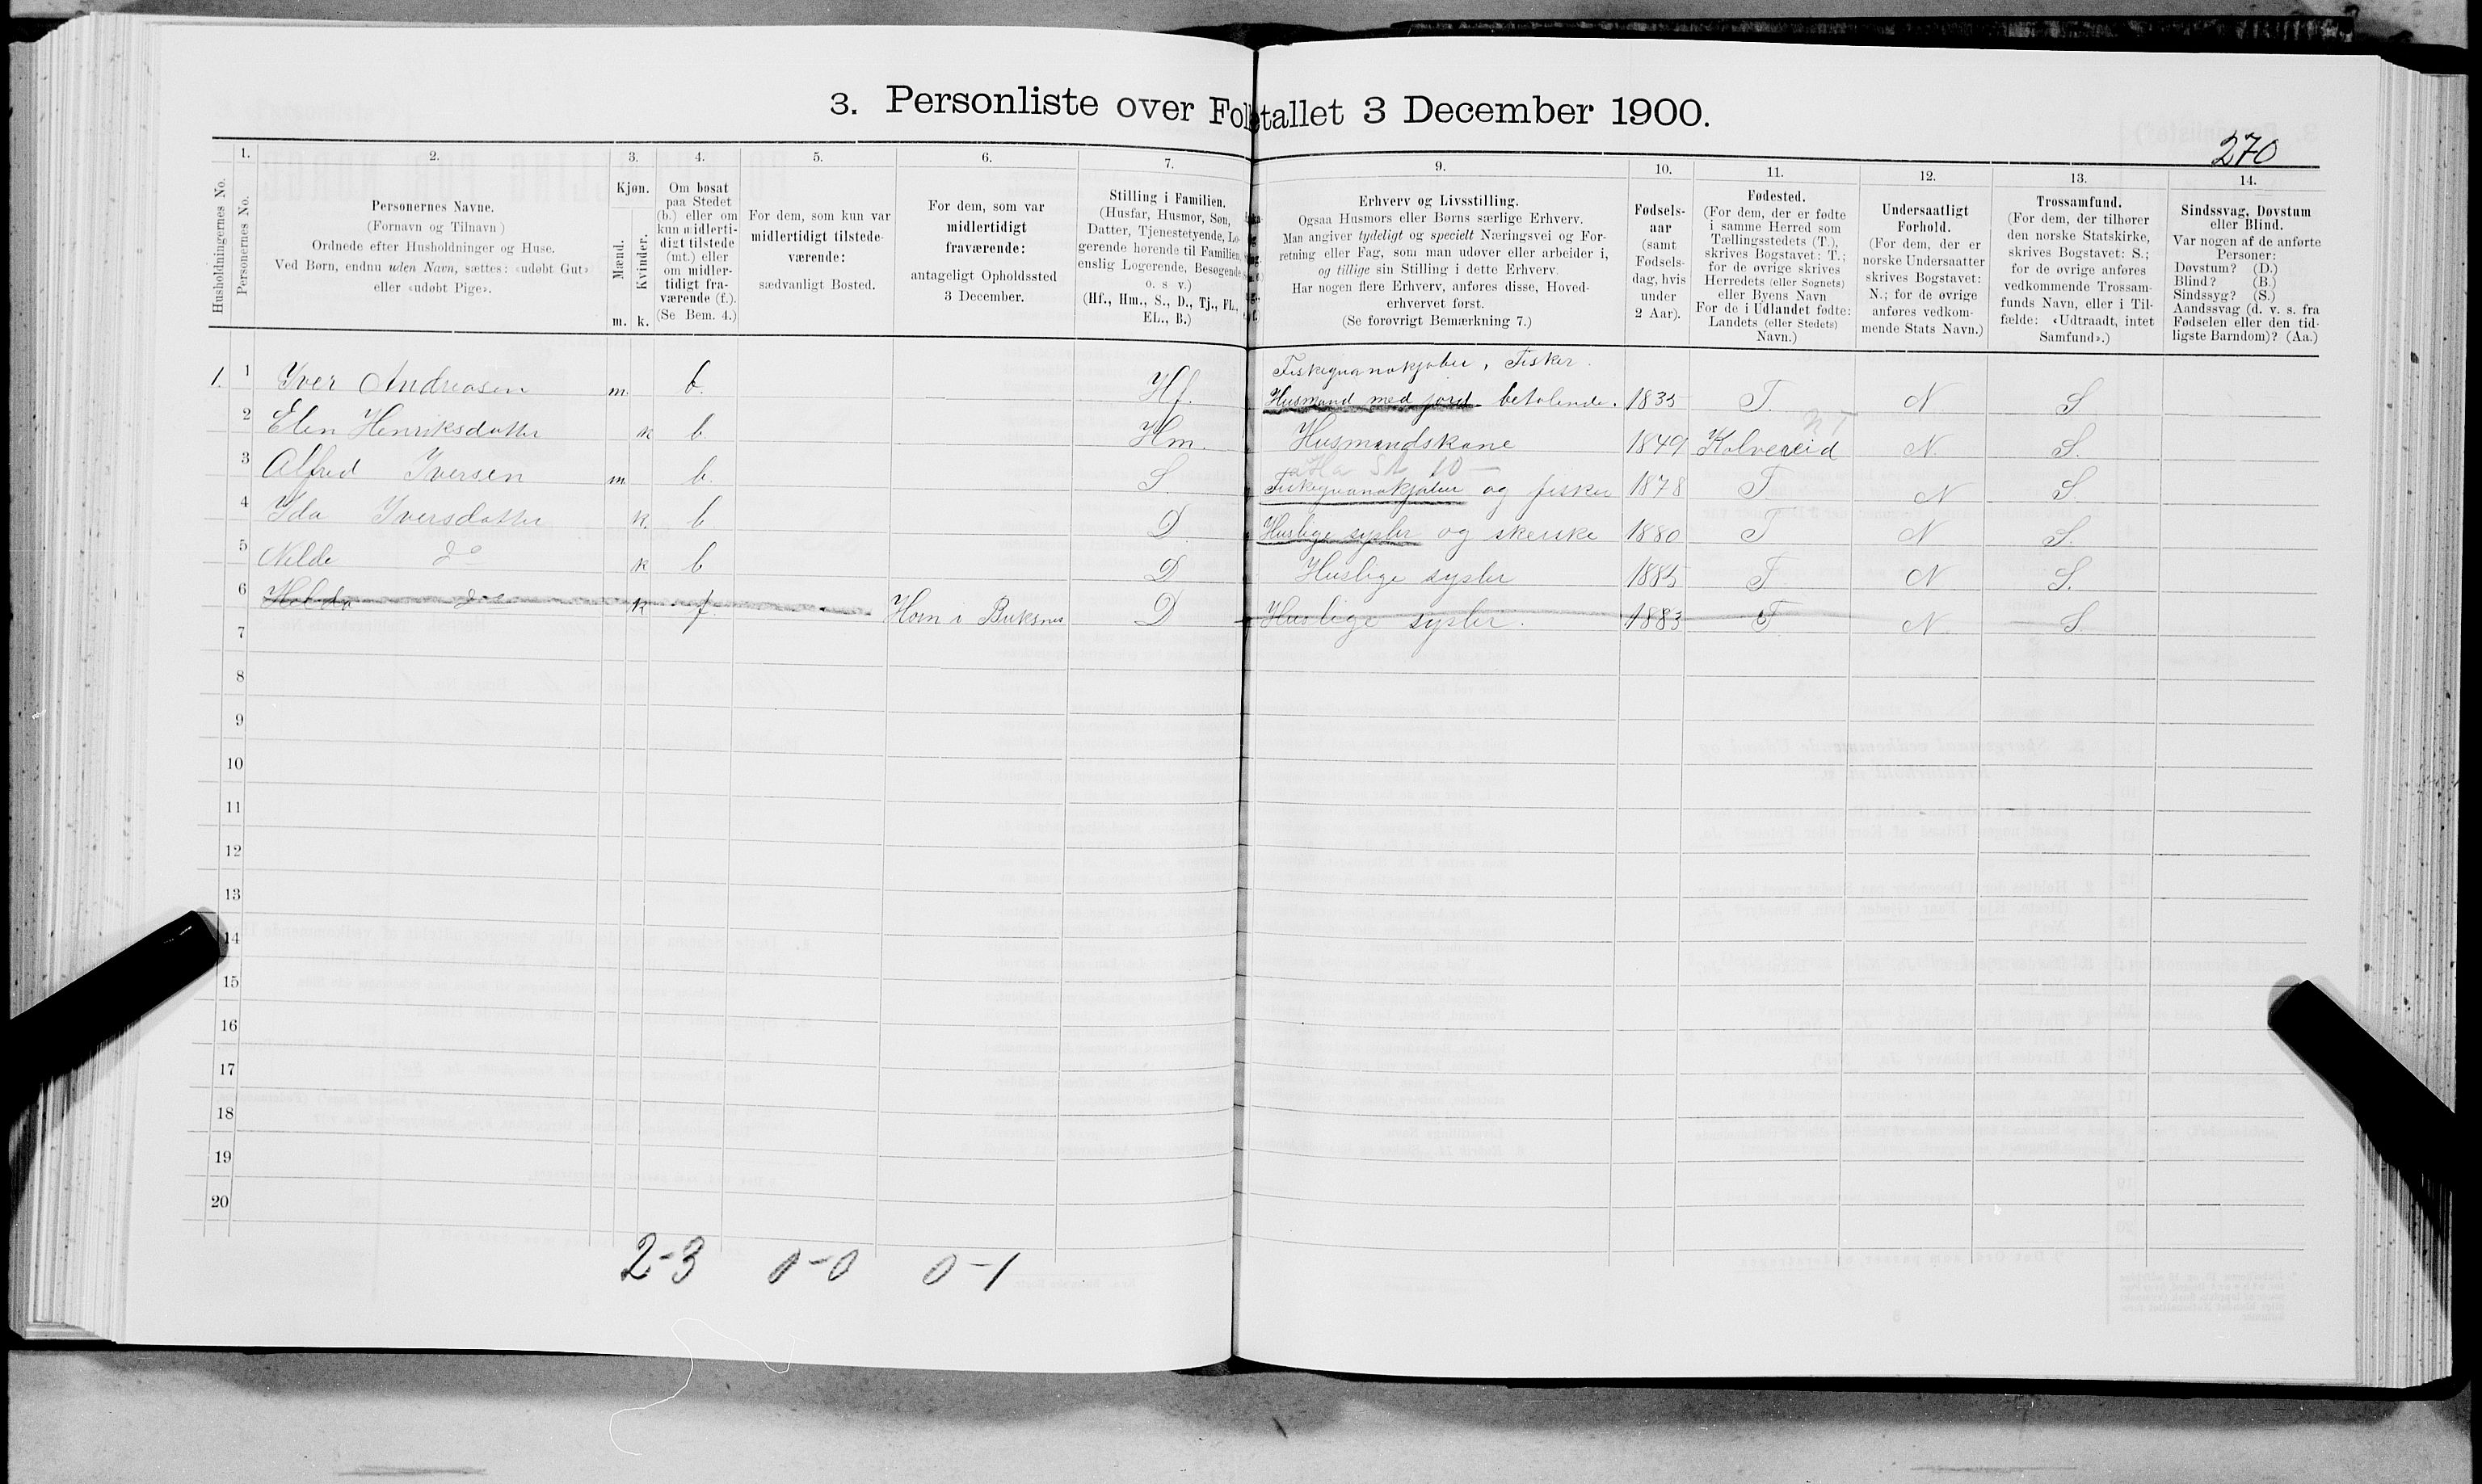 3. Personliste over Folketallet 3 December 1900.
270
1. 2. 3. 4. 5. 6. 7. 9. 10. 11. 12. 13. 14.
Husholdningernes No.
Personernes No.
Personernes Navne.
(Fornavn og Tilnavn)
Ordnede efter Husholdninger og Huse.
Ved Børn, endnu uden Navn, sættes: «udøbt Gut»
eller «udøbt Pige».
Kjøn.
Mænd.
Kvinder.
m. k.
Om bosat
paa Stedet
(b.) eller om
kun midlerti-
digt tilstede
(mt.) eller
om midler-
tidigt fra-
værende (f.).
(Se Bem. 4.)
For dem, som kun var
midlertidigt tilstede-
værende:
sædvanligt Bosted.
For dem, som var
midlertidigt
fraværende:
antageligt Opholdssted
3 December.
Stilling i Familien.
(Husfar, Husmor, Søn,
Datter, Tjenestetyende, Lo-
gerende hørende til Familien,
enslig Logerende, Besøgende
o. s v.)
(Hf., Hm., S., D., Tj., FL.,
EL., B.)
Erhverv og Livsstilling.
Ogsaa Husmors eller Børns særlige Erhverv.
Man angiver tydeligt og specielt Næringsvei og For-
retning eller Fag, som man udøver eller arbeider i,
og tillige sin Stilling i dette Erhverv.
Har nogen flere Erhverv, anføres disse, Hoved-
erhvervet først.
(Se forøvrigt Bemærkning 7.)
Fødsels-
aar
(samt
Fødsels-
dag, hvis
under
2 Aar).
Fødested.
(For dem, der er fødte
i samme Herred som
Tællingsstedets (T.),
skrives Bogstavet: T.;
for de øvrige skrives
Herredets (eller Sognets)
eller Byens Navn
For de i Udlandet fødte:
Landets (eller Stedets)
Navn.)
Undersaatligt
Forhold.
(For dem, der er
norske Undersaatter
skrives Bogstavet:
N.; for de øvrige
anføres vedkom-
mende Stats Navn.)
Trossamfund.
(For dem, der tilhører
den norske Statskirke,
skrives Bogstavet: S.;
for de øvrige anføres
vedkommende Trossam-
funds Navn, eller i Til-
fælde: «Udtraadt, intet
Samfund».)
Sindssvag, Døvstum
eller Blind.
Var nogen af de anførte
Personer:
Døvstum? (D.)
Blind? (B.)
Sindssyg? (S.)
Aandssvag (d. v. s. fra
Fødselen eller den tid-
ligste Barndom)? (Aa.)
Fiskeguanokjøber, Fisker.
1. 1 Iver Andreasen m b. Hf. Husmand med jord betalende. 1835 T. N S
2 Elen Henriksdatter k b. Hm. Husmandskone 1849 Kolvereid N. S.
3 Alfred Iversen m b. S. Fiskeguanokjøber og fisker 1878 T N S.
4 Ida Iversdatter k. b. D. Huslige sysler og skerske 1880 T N S.
5 Nilde do k b D Huslige sysler 1885 T N S.
6 Hilda do k f Horn i Buksnes D Huslige sysler. 1883 T N. S.
7
8
9
10
11
12
13
14
15
16
17
18
19
20
2-3 0-0 0-1